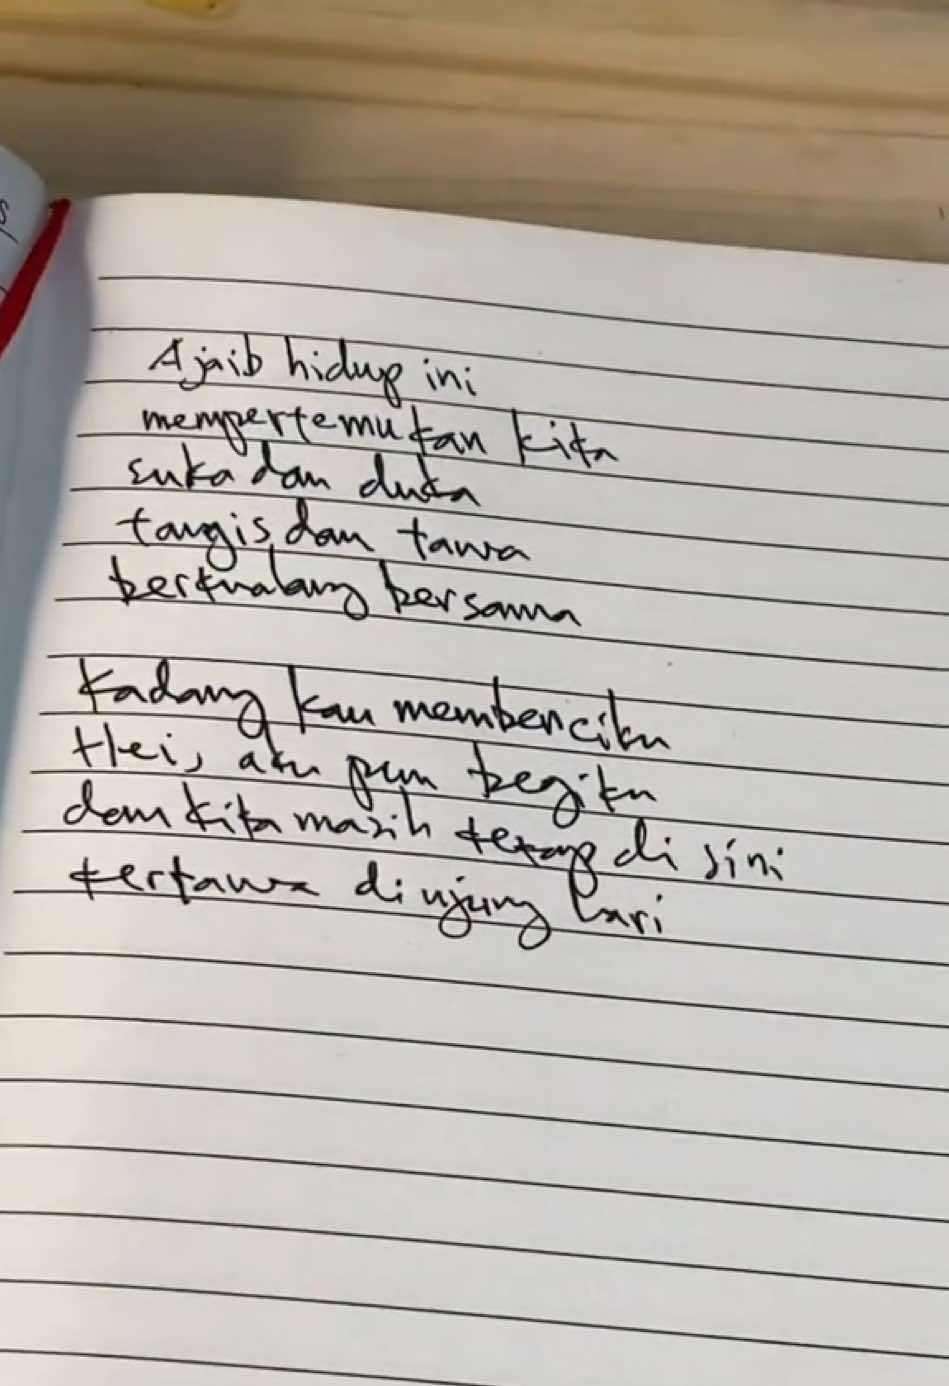 Ajaib hidup ini
mempertemukan kita
suka dan duka
tangis dan tawa
berkualang bersama
Kadang kau membenciku
Hei, aku pun begitu
dan kita masih tetap di sini
tertawa di ujung hari